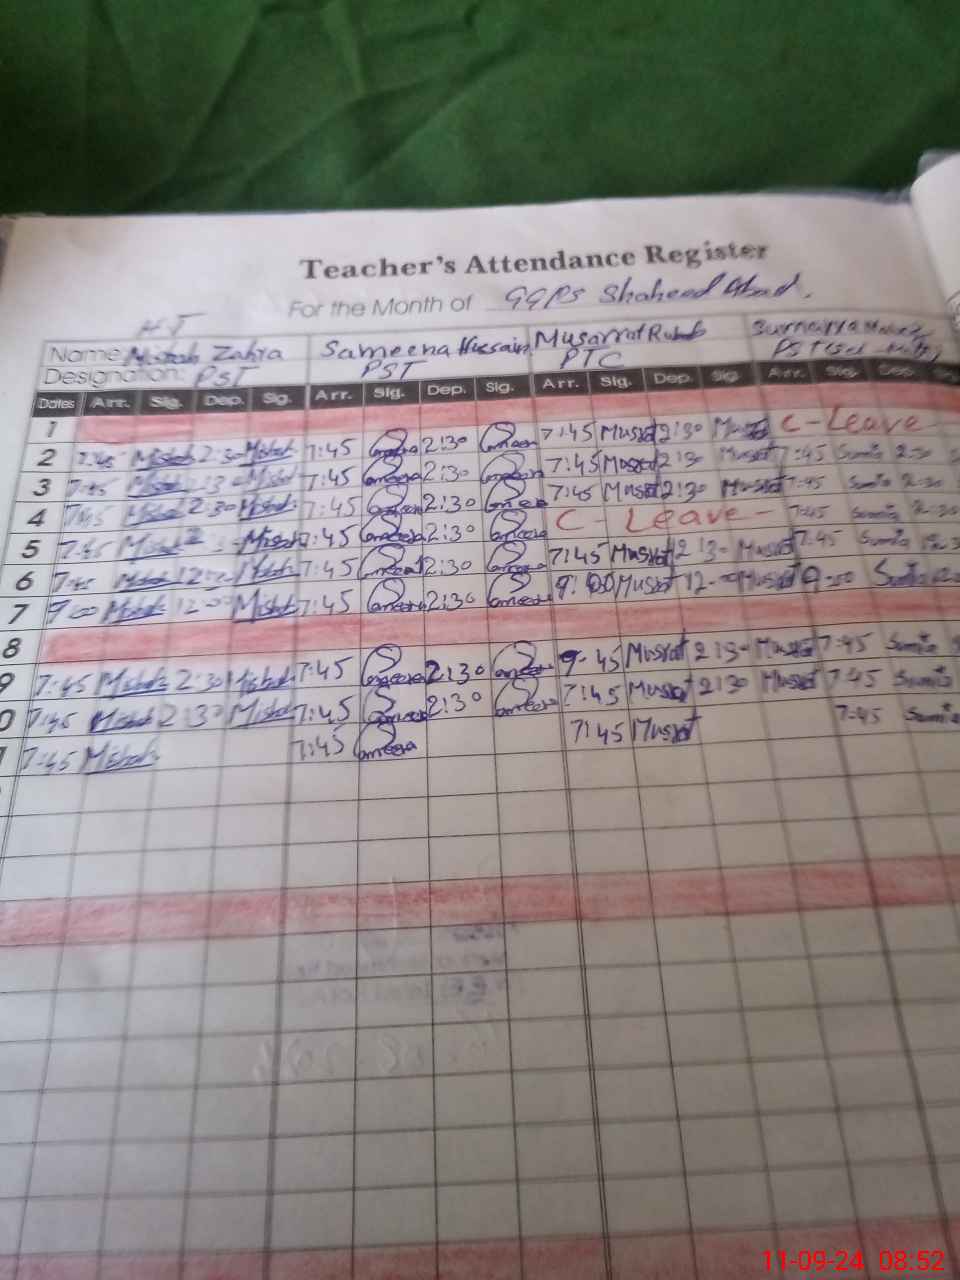 Teacher's Attendance Register
For the Month of GGPS Shaheed Abad.
HT
Name Misbah Zahra Sameena Hussain Musarrat Rubab
Designation: PST PST PTC
Dates Arr. Sig. Dep. Sig. Arr. Sig. Dep. Sig. Arr. Sig. Dep. Sig. Arr. Sig. Dep.
1
2 7:45 Misbah 2:30 Misbah 7:45 Sameena 2:30 Sameena 7:45 Musrat 2:30 Musrat C-Leave
3 7:45 Misbah 2:30 Misbah 7:45 Sameena 2:30 Sameena 7:45 Musrat 2:30 Musrat 7:45 Sumia 2:30
4 7:45 Misbah 2:30 Misbah 7:45 Sameena 2:30 Sameena 7:45 Musrat 2:30 Musrat 7:45 Sumia 2:30
5 7:45 Misbah Misbah 7:45 Sameena 2:30 Sameena C-Leave- 7:45 Sumia 2:30
6 7:45 Misbah Misbah 7:45 Sameena 2:30 Sameena 7:45 Musrat 2:30 Musrat 7:45 Sumia
7 9:00 Misbah 12:00 Misbah 7:45 Sameena 2:30 Sameena 9:00 Musrat 12:00 Musrat 9:00 Sumia
8
9 7:45 Misbah 2:30 Misbah 7:45 Sameena 2:30 Sameena 9:45 Musrat 2:30 Musrat 7:45 Sumia
0 7:45 Misbah 2:30 Misbah 7:45 Sameena 2:30 Sameena 7:45 Musrat 2:30 Musrat 7:45 Sumia
7:45 Misbah 7:45 Sameena 7:45 Musrat 7:45 Sumia
11-09-24 08:52